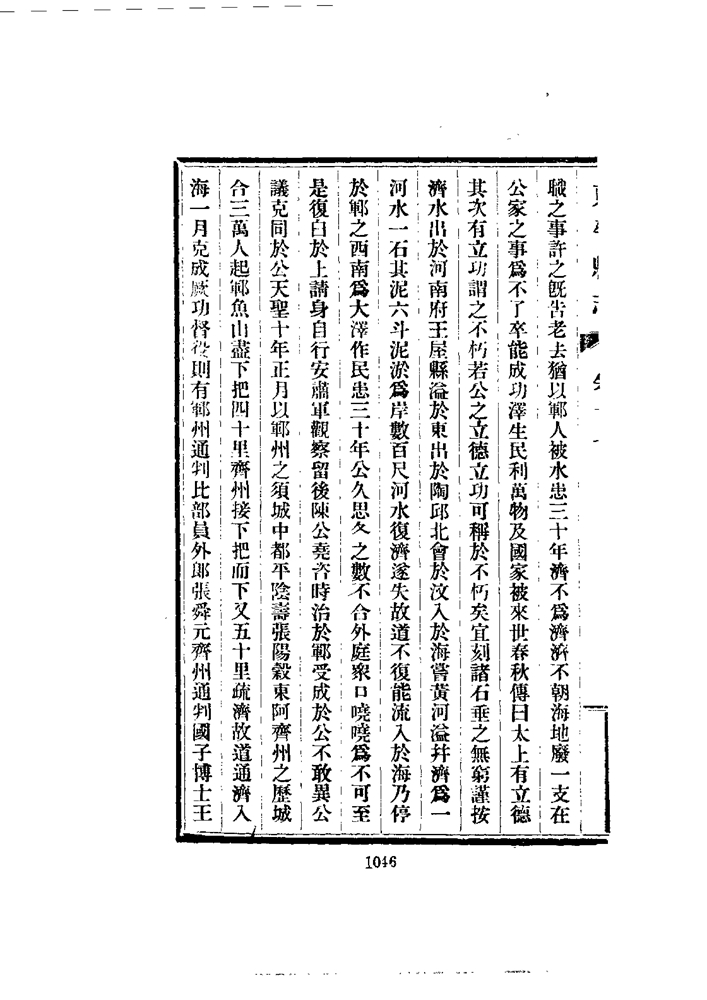 職之事許之旣告老去猶以鄆人被水患三十年濟不爲濟濟不朝海地廢一支在
公家之事爲不了卒能成功澤生民利萬物及國家被來世春秋傳曰太上有立德
其次有立功謂之不朽若公之立德立功可稱於不朽矣宜刻諸石垂之無窮謹按
濟水出於河南府王屋縣溢於東出於陶邱北會於汶入於海嘗黃河溢幷濟爲一
河水一石其泥六斗泥淤爲岸數百尺河水復濟遂失故道不復能流入於海乃停
於鄆之西南爲大澤作民患三十年公久思久之數不合外庭衆口嘵嘵爲不可至
是復白於上請身自行安肅軍觀察留後陳公堯咨時治於鄆受成於公不敢異公
議克同於公天聖十年正月以鄆州之須城中都平陰壽張陽穀東阿齊州之歷城
合三萬人起鄆魚山盡下把四十里齊州接下把而下又五十里疏濟故道通濟入
海一月克成厥功督役則有鄆州通判比部員外郎張舜元齊州通判國子博士王
1046